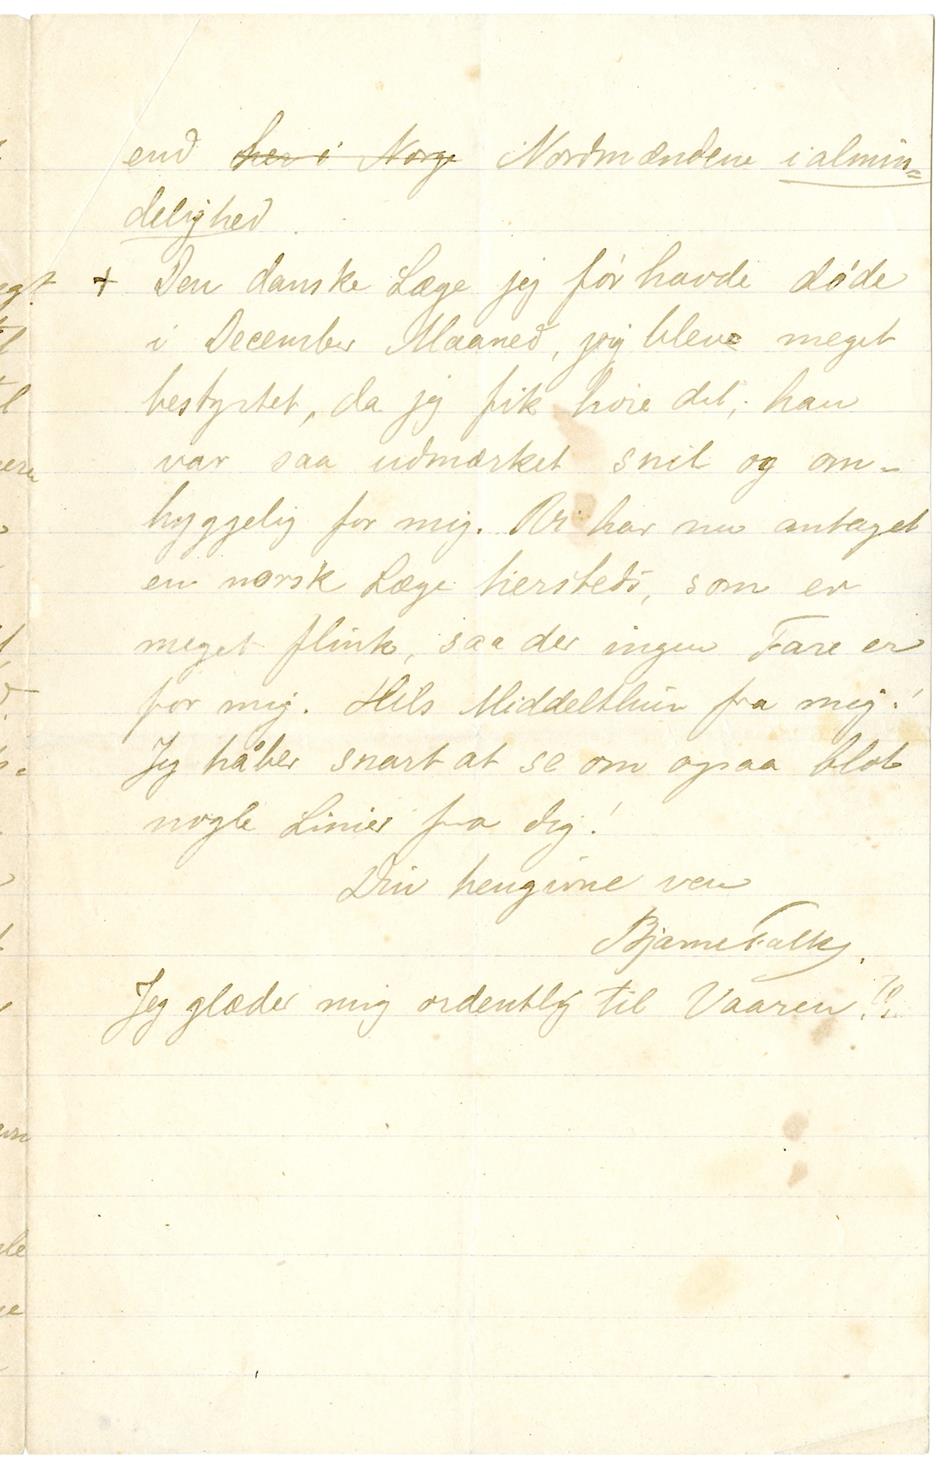 end her i Norge Nordmændene i almin=
delighed.
+ Den danske Læge jeg før havde døde
i December Maaned, jeg bleve meget
bestyrtet, da jeg fik høre det; han
var saa udmærket snil og om-
hyggelig for mig. Vi har nu antaget
en norsk Læge hersteds, som er
meget flink, saa der ingen Fare er
for mig. Hils Middelthun fra mig!
Jeg håber snart at se om ogsaa blot
nogle Linier fra dig!
Din hengivne ven
Bjarne Falk.
Jeg glæder mig ordentlig til Vaaren!!